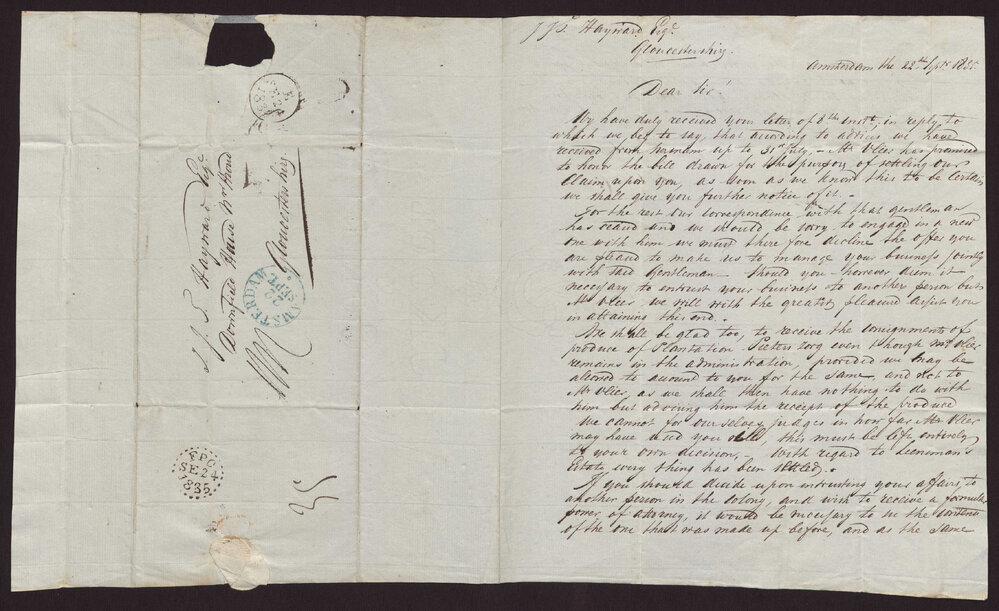 J. J. S. Hayward Esqr
Downfield House Nr Stroud
Gloucestershire
AMSTERDAM
22
SEPT.
FPO
SE 24
1835
J. J. S. Hayward Esqr
Gloucestershire.
Amsterdam the 22th Septr 1835.
Dear Sir!
We have duly received your letter of 8th instt, in reply to
which we beg to say, that according to advices we have
received from up to 31st July, Mr Vlier has promised
to honor the bill drawn for the purpose of settling our
Claim upon you, as soon as we know this to be certain
we shall give you further notice of it.
For the rest our correspondence with that gentleman
has ceased and we should be sorry to engage in a new
one with him we must there fore decline the offer you
are pleased to make us to manage your business jointly
with said Gentleman. Should you however deem it
necessary to intrust your business to another person but
Mr Vlier we will with the greatest pleasure assist you
in attaining this end.
We shall be glad too, to receive the consignments of
produce of Plantation Pieterszorg even though Mr Vlier
remains in the administration, provided we may be
allowed to account to you for the same, and not to
Mr Vlier, as we shall then have nothing to do with
him but advising him the receipt of the produce
We cannot for ourselves judge in how far Mr Vlier
may have used you ill, this must be left entirely
to your own decision, - With regard to Leensman's
Estate every thing has been settled.
If you should decide upon intrusting yours affairs to
another person in the colony, and wish to receive a formular
power of attorney, it would be necessary to see the contents
of the one that was made up before, and as the same